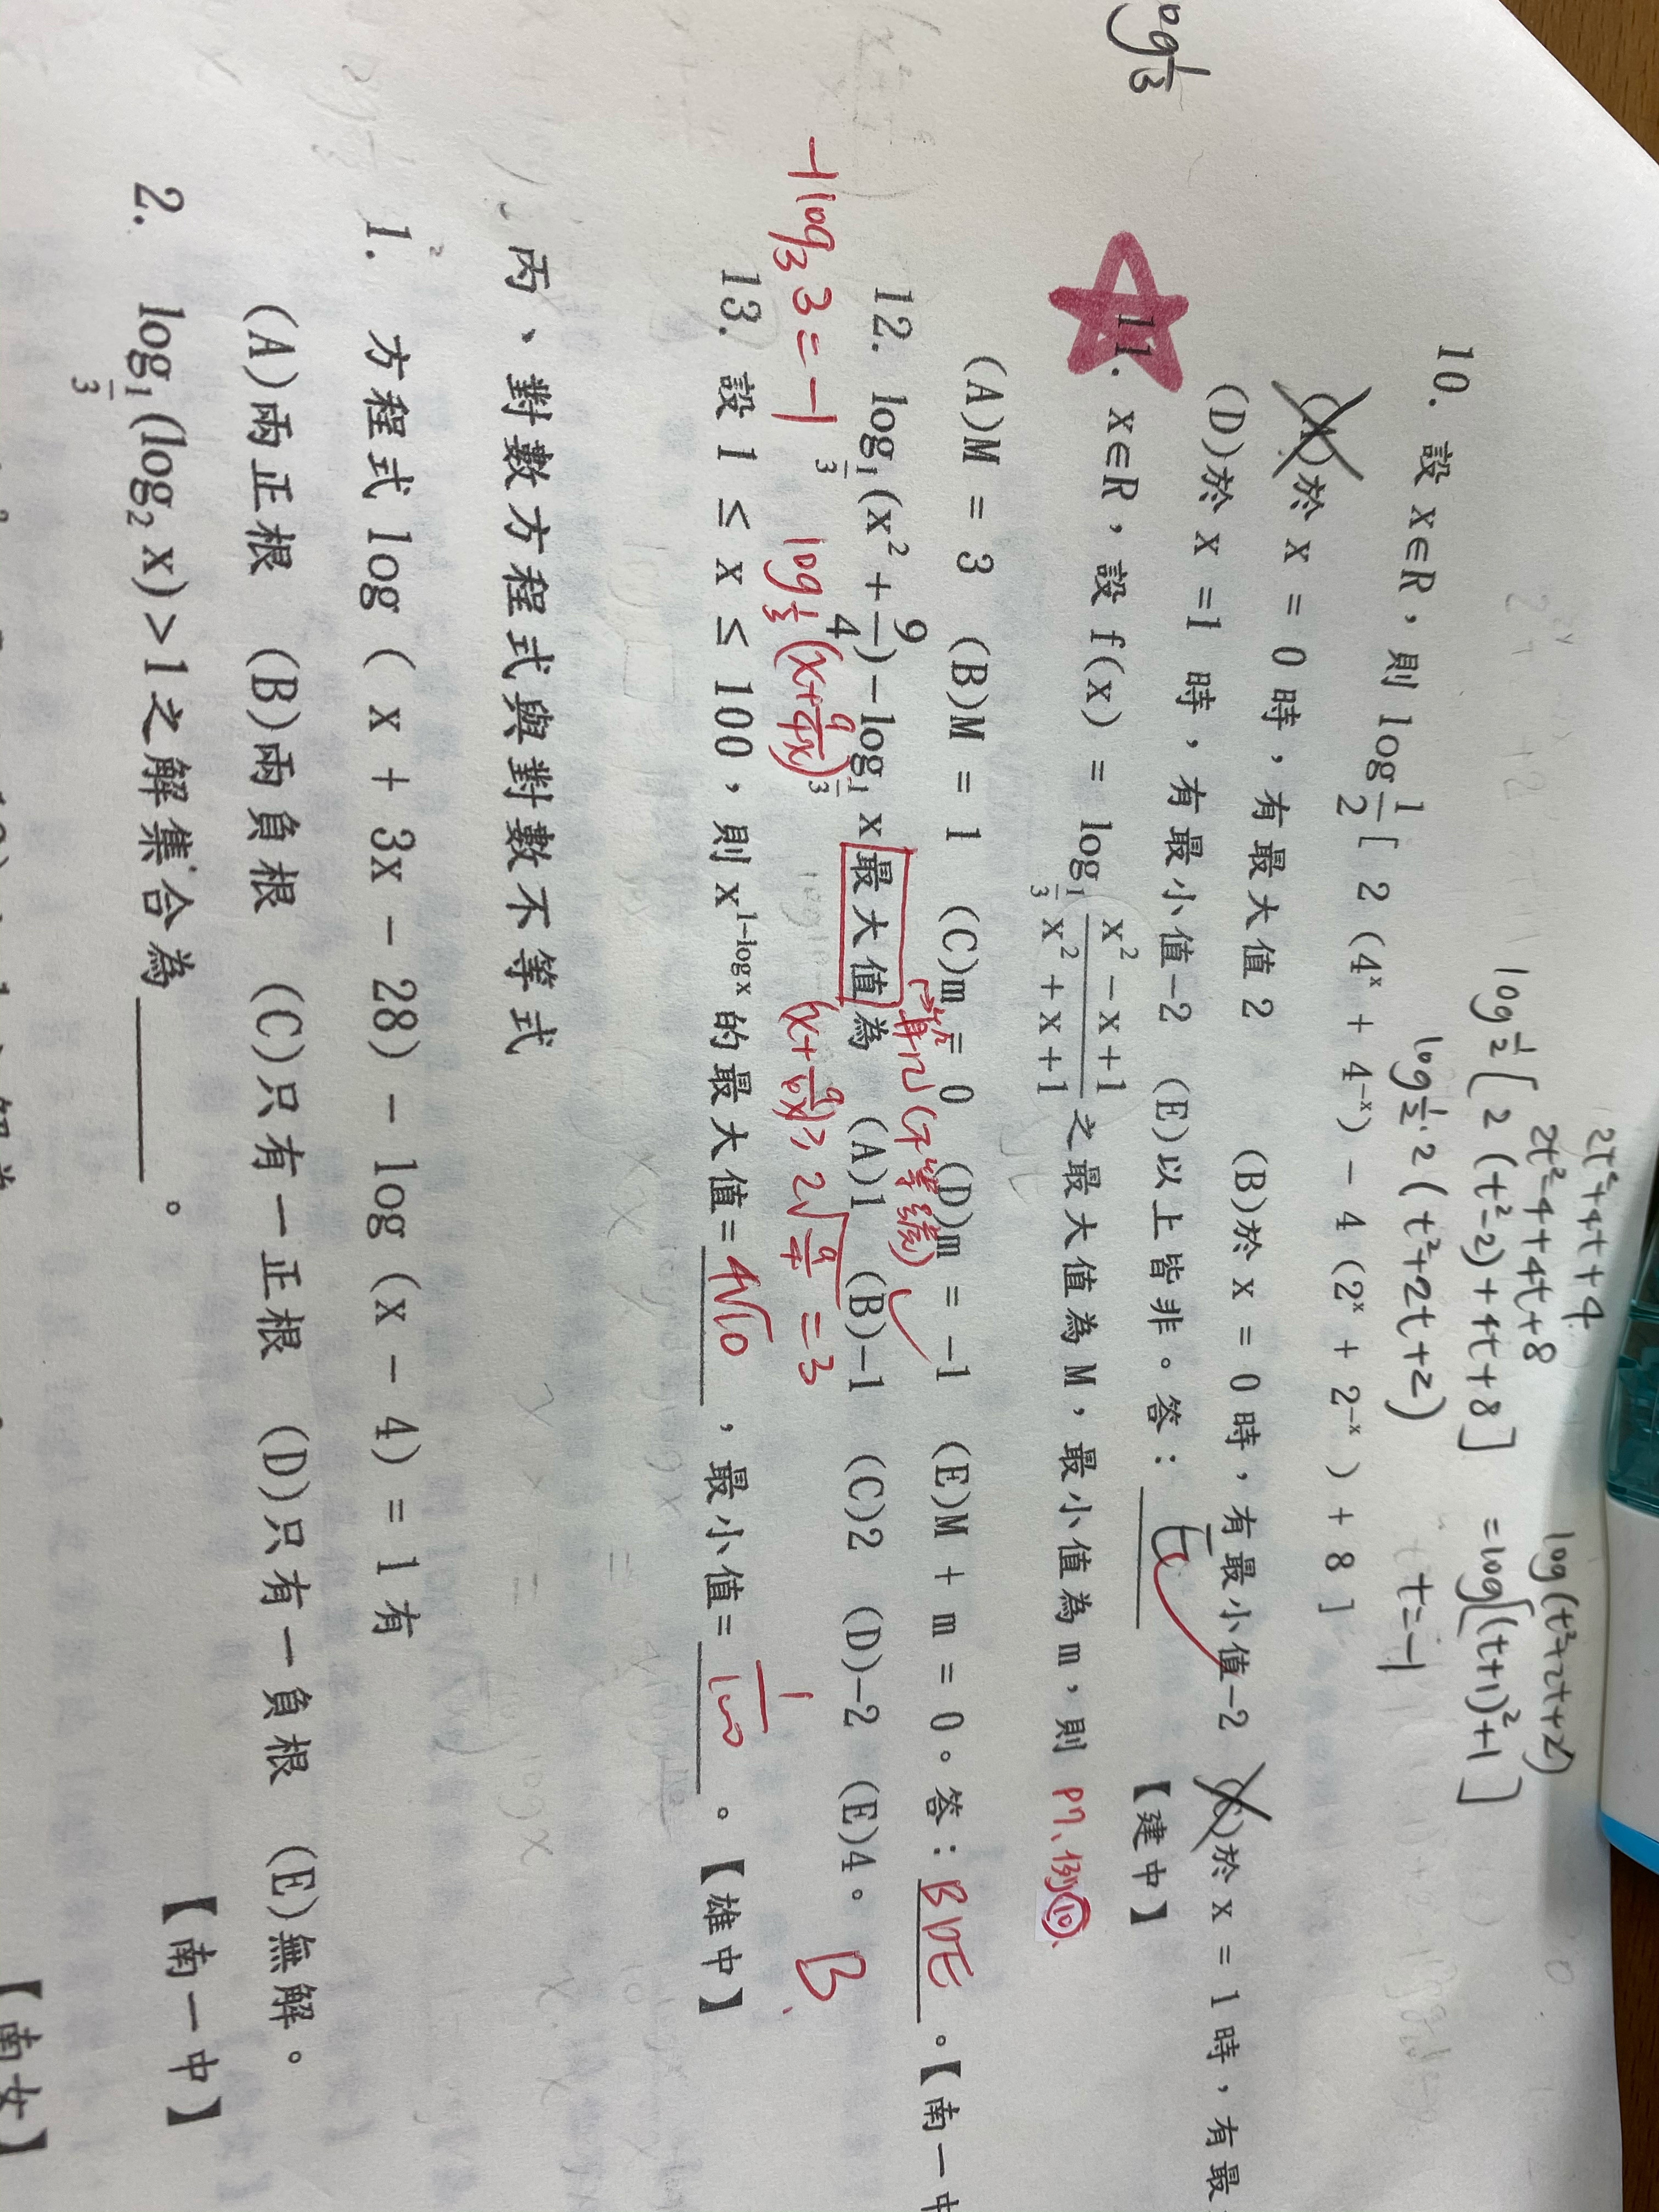 2t²+4t+4
2t²-4+4t+8
log(t²+2t+2)
log½[2(t²-2)+4t+8] =log[(t+1)²+1]
log½·2(t²+2t+2) t=-1
10. 設 x∈R，則 log 1/2 [ 2 (4ˣ + 4⁻ˣ) - 4 (2ˣ + 2⁻ˣ ) + 8 ]
(A)於 x = 0 時，有最大值 2 (B)於 x = 0 時，有最小值-2 (C)於 x = 1 時，有最
(D)於 x =1 時，有最小值-2 (E)以上皆非。答： E 【建中】
11. x∈R，設 f(x) = log_{1/3} (x²-x+1)/(x²+x+1) 之最大值為 M，最小值為 m，則 P7、例⑩、
(A)M = 3 (B)M = 1 (C)m = 0 (D)m = -1 (E)M + m = 0。答： BDE 。【南一中
算几(不等號)
12. log_{1/3}(x²+9/4)-log_{1/3} x 最大值為 (A)1 (B)-1 (C)2 (D)-2 (E)4。 B
-1log₃3=-1 log_{1/3}(x+9/4x) (x+9/4x)≥2√(9/4)=3
13. 設 1 ≤ x ≤ 100，則 x^{1-log x} 的最大值= ⁴√10 ，最小值= 1/100 。【雄中】
丙、對數方程式與對數不等式
1. 方程式 log ( x + 3x - 28) - log (x - 4) = 1 有
(A)兩正根 (B)兩負根 (C)只有一正根 (D)只有一負根 (E)無解。
【南一中】
2. log_{1/3}(log₂ x)>1 之解集合為 ______ 。
【南女】